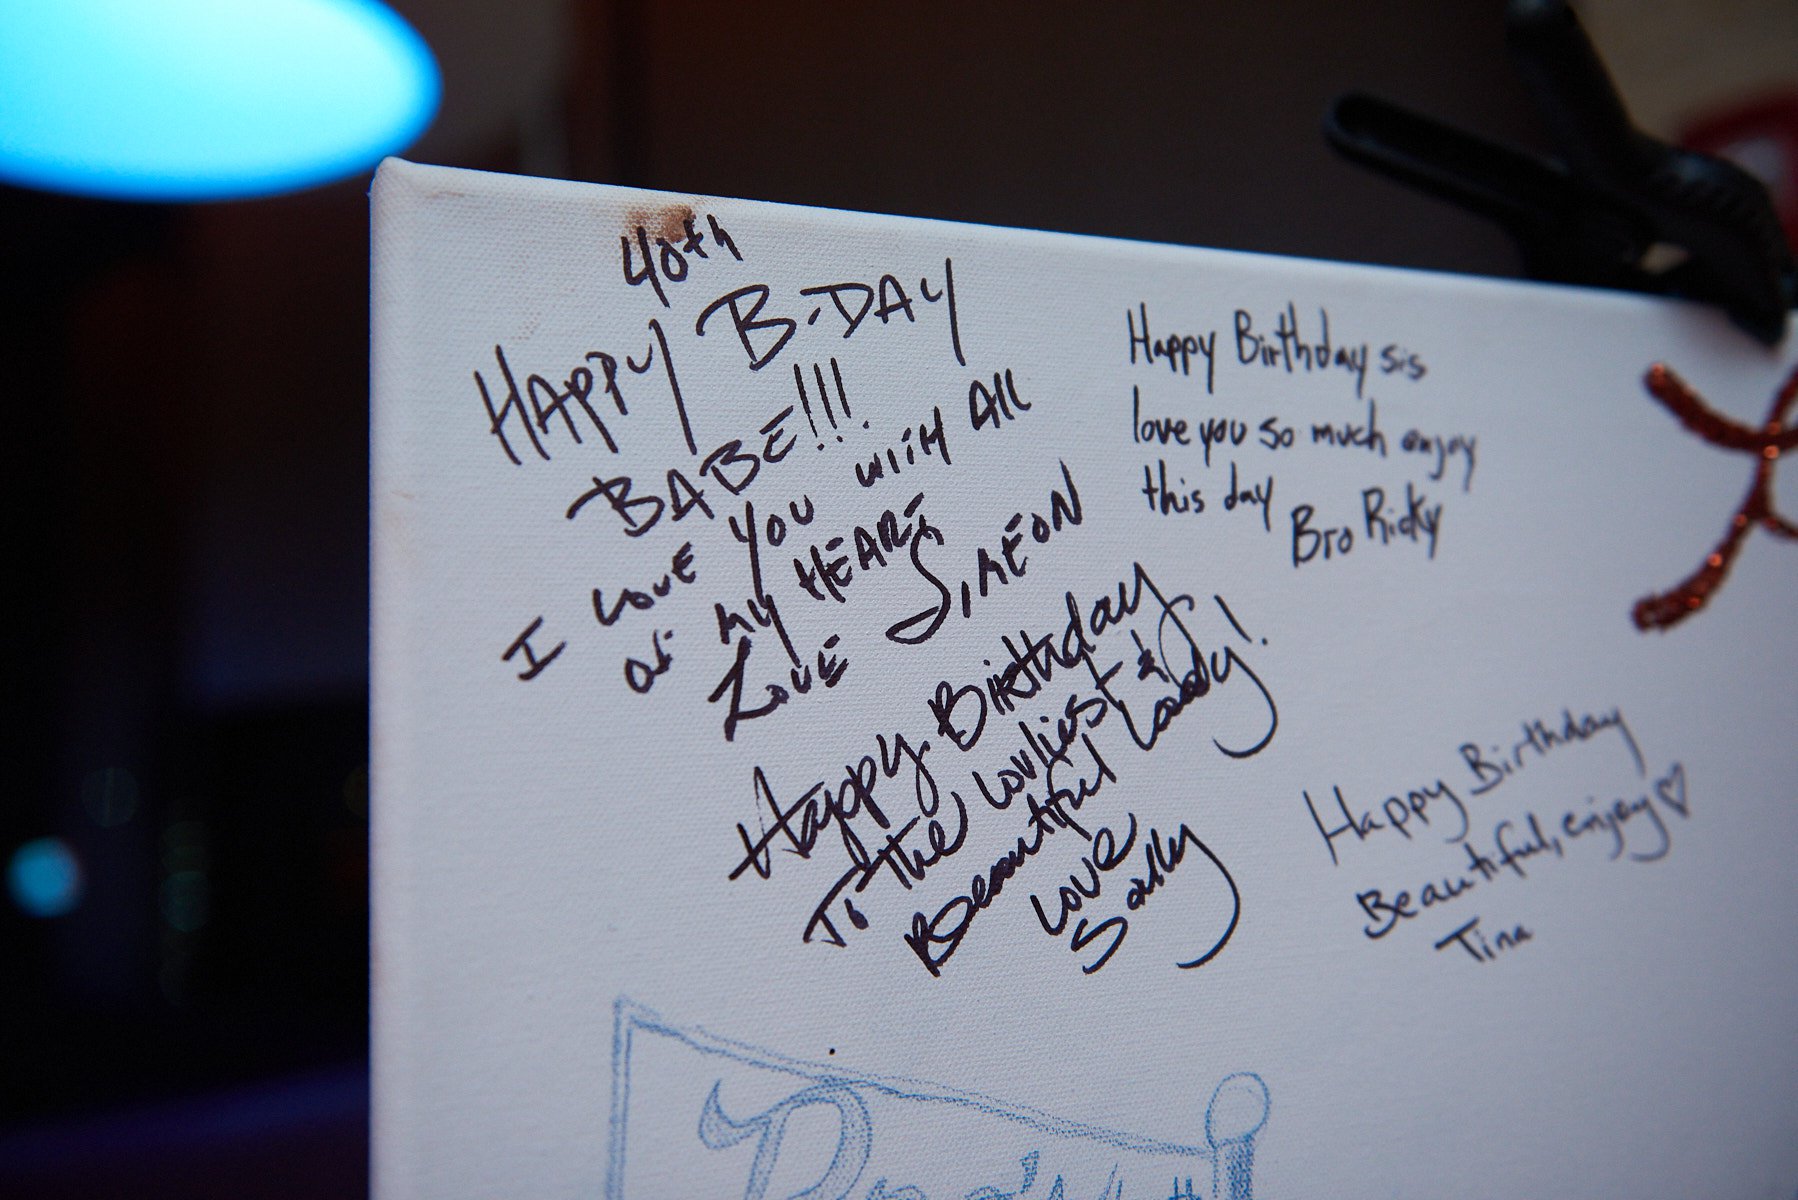 40th
HAPPY B-DAY
BABE!!!
I LOVE YOU WITH All
OF MY HEART
LOVE SIMEON
Happy Birthday sis
love you so much enjoy
this day
Bro Ricky
Happy Birthday
To the Lovliest &
Beautiful Lady!
Love
Sally
Happy Birthday
Beautiful, enjoy ♡
Tina